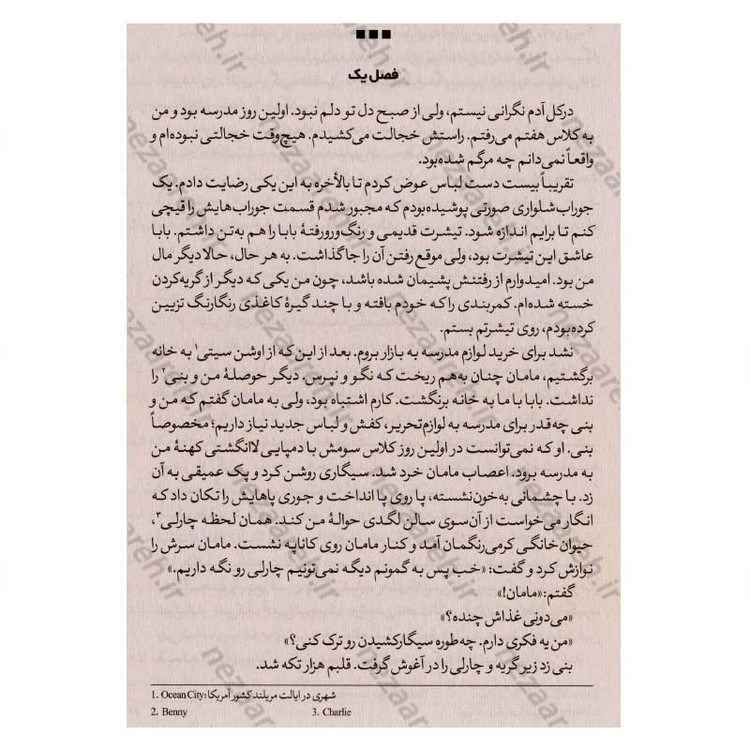 فصل یک
درکل آدم نگرانی نیستم، ولی از صبح دل تو دلم نبود. اولین روز مدرسه بود و من
به کلاس هفتم می‌رفتم. راستش خجالت می‌کشیدم. هیچ‌وقت خجالتی نبوده‌ام و
واقعاً نمی‌دانم چه مرگم شده‌بود.
تقریباً بیست دست لباس عوض کردم تا بالأخره به این یکی رضایت دادم. یک
جوراب‌شلواری صورتی پوشیده‌بودم که مجبور شدم قسمت جوراب‌هایش را قیچی
کنم تا برایم اندازه شود. تیشرت قدیمی و رنگ‌ورورفتهٔ بابا را هم به‌تن داشتم. بابا
عاشق این تیشرت بود، ولی موقع رفتن آن را جا گذاشت. به هر حال، حالا دیگر مال
من بود. امیدوارم از رفتنش پشیمان شده باشد، چون من یکی که دیگر از گریه‌کردن
خسته شده‌ام. کمربندی را که خودم بافته و با چند گیرهٔ کاغذی رنگارنگ تزیین
کرده‌بودم، روی تیشرتم بستم.
نشد برای خرید لوازم مدرسه به بازار بروم. بعد از این که از اوشن سیتی۱ به خانه
برگشتیم، مامان چنان به‌هم ریخت که نگو و نپرس. دیگر حوصلهٔ من و بنی۲ را
نداشت. بابا با ما به خانه برنگشت. کارم اشتباه بود، ولی به مامان گفتم که من و
بنی چه‌قدر برای مدرسه به لوازم‌تحریر، کفش و لباس جدید نیاز داریم؛ مخصوصاً
بنی. او که نمی‌توانست در اولین روز کلاس سومش با دمپایی لاانگشتی کهنهٔ من
به مدرسه برود. اعصاب مامان خرد شد. سیگاری روشن کرد و پک عمیقی به آن
زد. با چشمانی به‌خون‌نشسته، پا روی پا انداخت و جوری پاهایش را تکان داد که
انگار می‌خواست از آن‌سوی سالن لگدی حوالهٔ من کند. همان لحظه چارلی۳،
حیوان خانگی کرمی‌رنگمان آمد و کنار مامان روی کاناپه نشست. مامان سرش را
نوازش کرد و گفت: «خب پس به گمونم دیگه نمی‌تونیم چارلی رو نگه داریم.»
گفتم: «مامان!»
«می‌دونی غذاش چنده؟»
«من یه فکری دارم. چه‌طوره سیگارکشیدن رو ترک کنی؟»
بنی زد زیر گریه و چارلی را در آغوش گرفت. قلبم هزار تکه شد.
1. Ocean City: شهری در ایالت مریلند کشور آمریکا
2. Benny 3. Charlie
nezaareh.ir